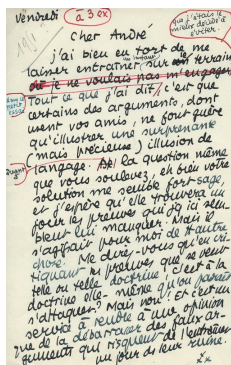 Vendredi
à 3 ex
que j'étais le
mieux décidé à
éviter.
19/1
Cher André
j'ai bien eu tort de me
laisser entraîner sur un terrain
où je ne voulais pas m'engager
Tout ce que j'ai dit, c'est que
certains des arguments, dont
usent vos amis, ne font guère
qu'illustrer une surprenante
(mais précieuse) illusion de
langage. la question même
Quant
que vous soulevez, eh bien votre
solution me semble fort sage,
et j'espère qu'elle trouvera un
jour les preuves qui ici
lui manquer. Mais il
s'agissait pour moi de tout autre
chose. Me direz-vous qu'en cri-
tiquant les preuves que se veut
telle ou telle doctrine, c'est à la
doctrine elle-même qu'on paraît
s'attaquer? Mais non. Et c'est un
service à rendre à une opinion
que de la débarrasser des faux ar-
guments qui risquent de l'entraîner
un jour ds leur ruine.